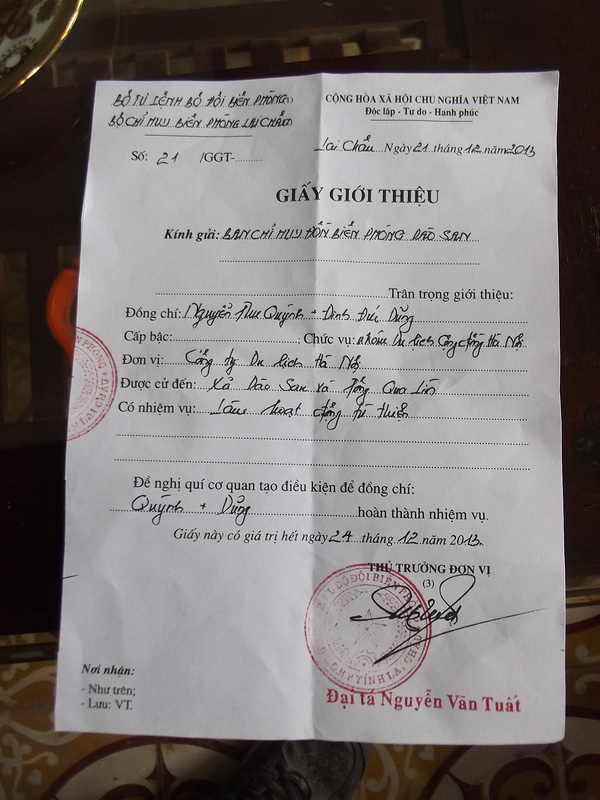 BỘ TƯ LỆNH BỘ ĐỘI BIÊN PHÒNG
BỘ CHỈ HUY BIÊN PHÒNG LAI CHÂU
CỘNG HÒA XÃ HỘI CHỦ NGHĨA VIỆT NAM
Độc lập - Tự do - Hạnh phúc
Số: 21 /GGT-..........
Lai Châu Ngày 21 tháng 12 năm 2013
GIẤY GIỚI THIỆU
Kính gửi: BAN CHỈ HUY ĐỒN BIÊN PHÒNG DÀO SAN
Trân trọng giới thiệu:
Đồng chí: Nguyễn Như Quỳnh + Đinh Đức Dũng
Cấp bậc: Chức vụ: nhóm Du lịch Cộng đồng Hà Nội
Đơn vị: Công ty Du lịch Hà Nội
Được cử đến: Xã Dào San và Tông Qua Lìn
Có nhiệm vụ: Làm hoạt động từ thiện
Đề nghị quí cơ quan tạo điều kiện để đồng chí:
Quỳnh + Dũng hoàn thành nhiệm vụ.
Giấy này có giá trị hết ngày 24 tháng 12 năm 2013
THỦ TRƯỞNG ĐƠN VỊ
(3)
Nơi nhận:
- Như trên;
- Lưu: VT.
Đại tá Nguyễn Văn Tuất